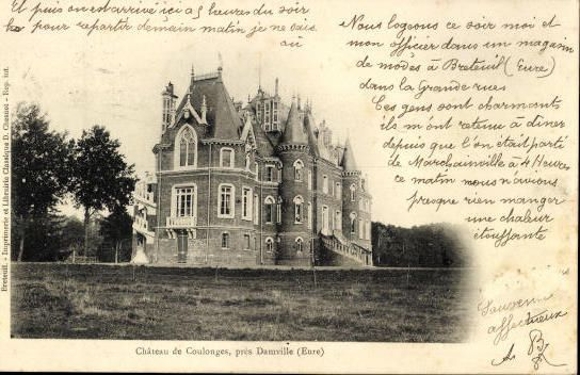 Et puis on est arrivé ici à 5 heures du soir
pour repartir demain matin je ne sais
où
Nous logeons ce soir moi et
mon officier dans un magasin
de modes à Breteuil (Eure)
dans la Grande rues
Ces gens sont charmants
ils m'ont retenu à diner
depuis que l'on était parti
de Marchainville à 4 Heures
ce matin nous n'avions
presque rien manger
une chaleur
étouffante
Souvenir
affectueux
Breteuil. - Imprimerie et Librairie Classique D. Chesnel - Rep. int.
Château de Coulonges, près Damville (Eure)